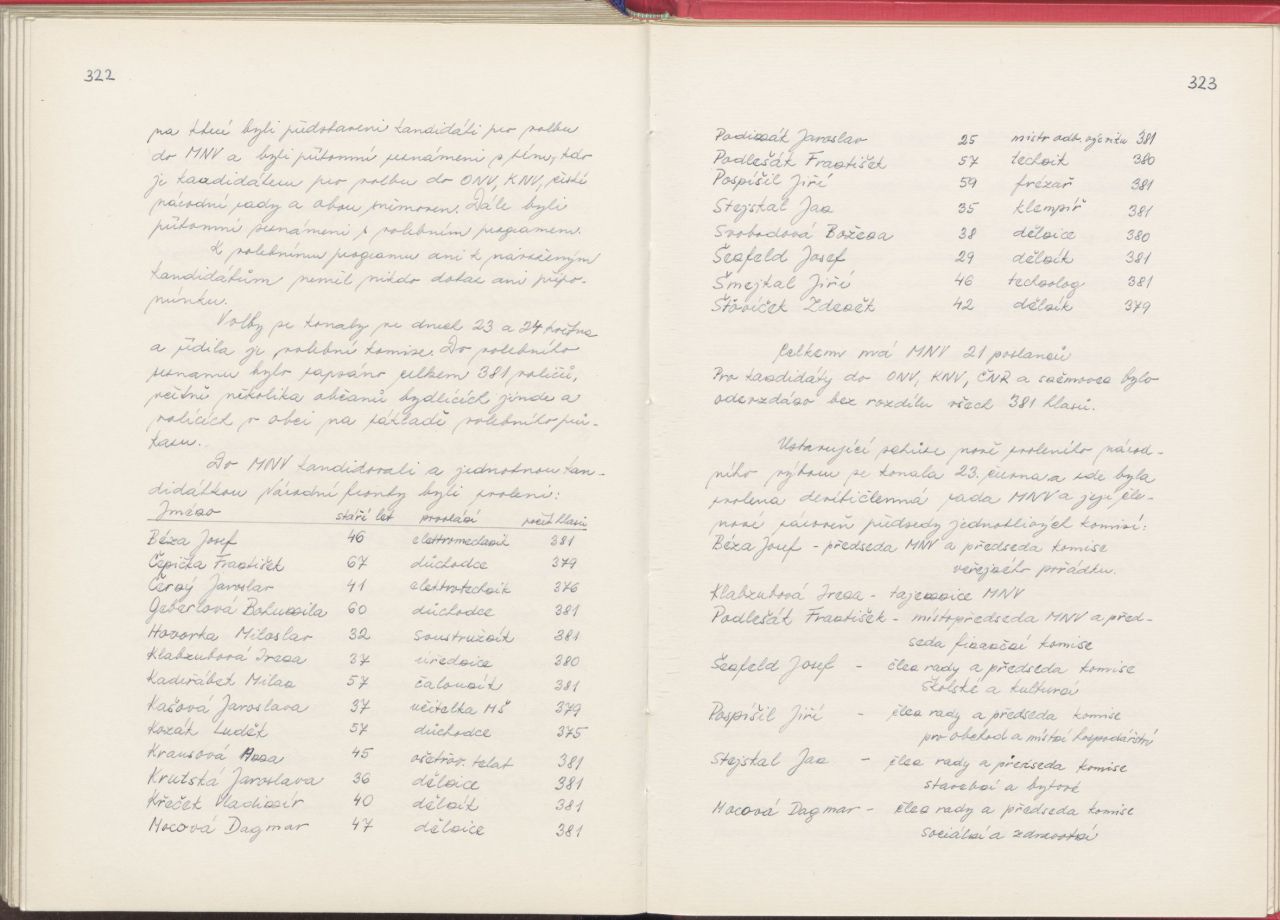 322
na které byli představeni kandidáti pro volbu
do MNV a byli přítomní seznámeni s tím, kdo
je kandidátem pro volbu do ONV, KNV, České
národní rady a obou sněmoven. Dále byli
přítomní seznámeni s volebním programem.
K volebnímu programu ani k navrženým
kandidátům neměl nikdo dotaz ani připo-
mínku.
Volby se konaly ve dnech 23 a 24 května
a řídila je volební komise. Do volebního
seznamu bylo zapsáno celkem 381 voličů,
včetně několika občanů bydlících jinde a
volících v obci na základě volebního prů-
kazu.
Do MNV kandidovali a jednotnou kan-
didátkou Národní fronty byli zvoleni:
Jméno stáří let povolání počet hlasů
Béza Josef 46 elektromechanik 381
Čepička František 67 důchodce 379
Černý Jaroslav 41 elektrotechnik 376
Geberlová Bohumila 60 důchodce 381
Hovorka Miloslav 32 soustružník 381
Klabzubová Irena 37 úřednice 380
Kadeřábek Milan 57 čalouník 381
Kašová Jaroslava 37 učitelka MŠ 379
Kozák Luděk 57 důchodce 375
Krausová Anna 45 ošetřov. telat 381
Krutská Jaroslava 36 dělnice 381
Křeček Vladimír 40 dělník 381
Mocová Dagmar 47 dělnice 381
323
Podzimák Jaroslav 25 mistr odb. výcviku 381
Podlešák František 57 technik 380
Pospíšil Jiří 59 frézař 381
Stejskal Jan 35 klempíř 381
Svobodová Božena 38 dělnice 380
Šenfeld Josef 29 dělník 381
Šmejkal Jiří 46 technolog 381
Šťovíček Zdeněk 42 dělník 379
Celkem má MNV 21 poslanců
Pro kandidáty do ONV, KNV, ČNR a sněmoven bylo
odevzdáno bez rozdílu všech 381 hlasů.
Ustavující schůze nově zvoleného národ-
ního výboru se konala 23. června a zde byla
zvolena devítičlenná rada MNV a její čle-
nové zároveň předsedy jednotlivých komisí:
Béza Josef - předseda MNV a předseda komise
veřejného pořádku.
Klabzubová Irena - tajemnice MNV
Podlešák František - místopředseda MNV a před-
seda finanční komise
Šenfeld Josef - člen rady a předseda komise
školské a kulturní
Pospíšil Jiří - člen rady a předseda komise
pro obchod a místní hospodářství
Stejskal Jan - člen rady a předseda komise
stavební a bytové
Mocová Dagmar - člen rady a předseda komise
sociální a zdravotní